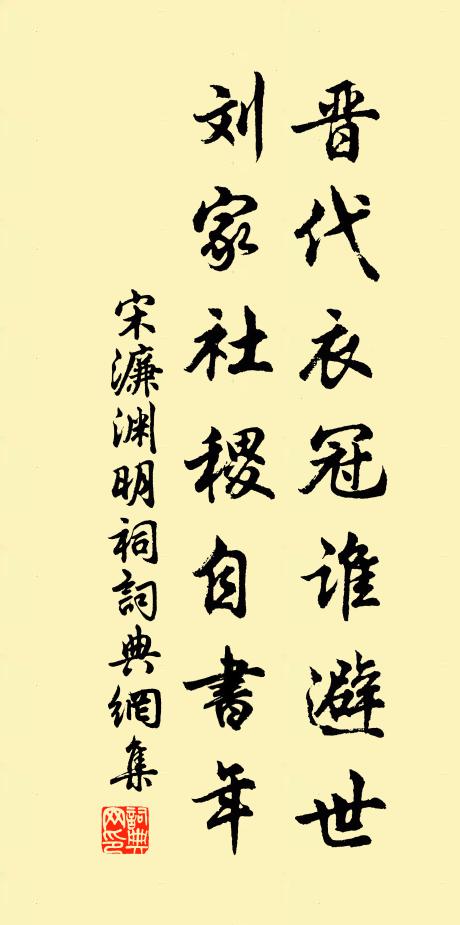 晋代衣冠谁避世
刘家社稷自书年
宋濂渊明祠詞典網集
詞典网印